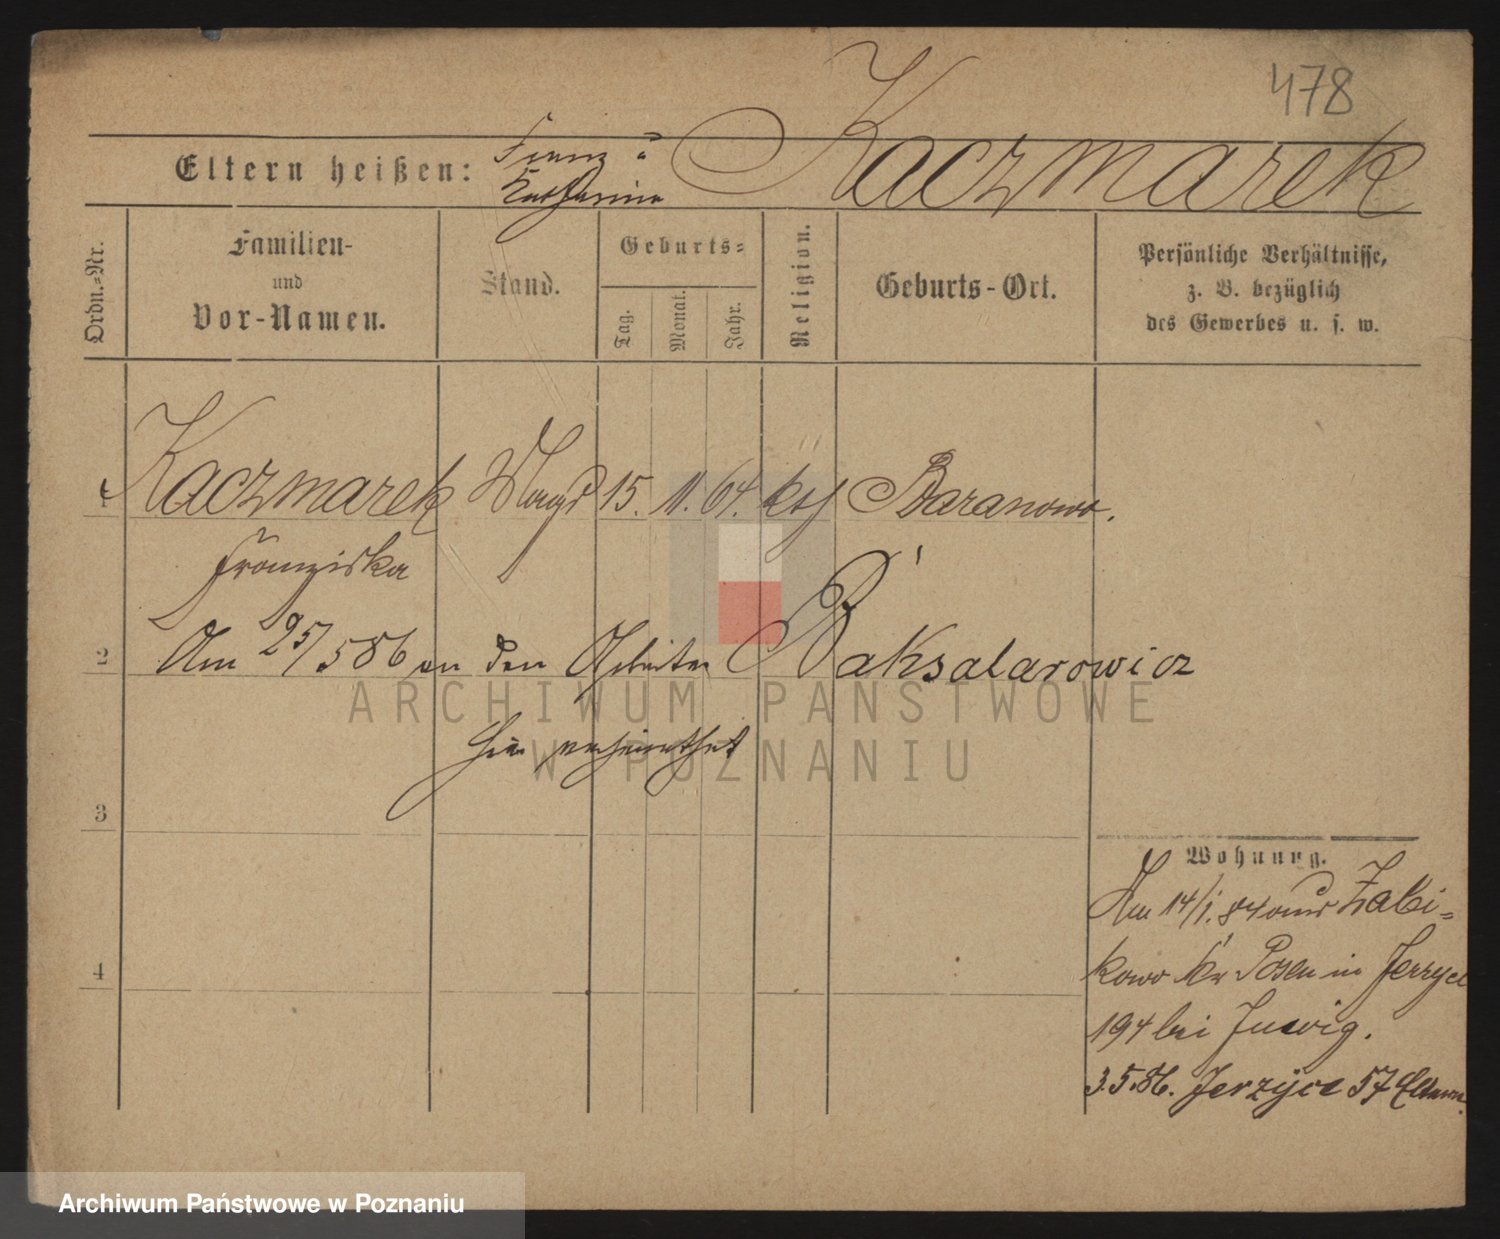 478
Eltern heißen: Franz u Kaczmarek
Katharina
Ordn.-Nr.
Familien-
und
Vor-Namen.
Stand.
Geburts-
Tag.
Monat.
Jahr.
Religion.
Geburts-Ort.
Persönliche Verhältnisse,
z. B. bezüglich
des Gewerbes u. s. w.
1 Kaczmarek Magd 15. 11. 64. kth Baranowo.
Franziska
2 Am 25/5 86 an den Arbeiter Baksalarowicz
hier verheirathet
3
4
Wohnung.
Am 14/1. 84 aus Zabi-
kowo Kr Posen in Jerzyce
194 bei
3.5.86. Jerzyce 57 Eltern.
ARCHIWUM PAŃSTWOWE
W POZNANIU
Archiwum Państwowe w Poznaniu